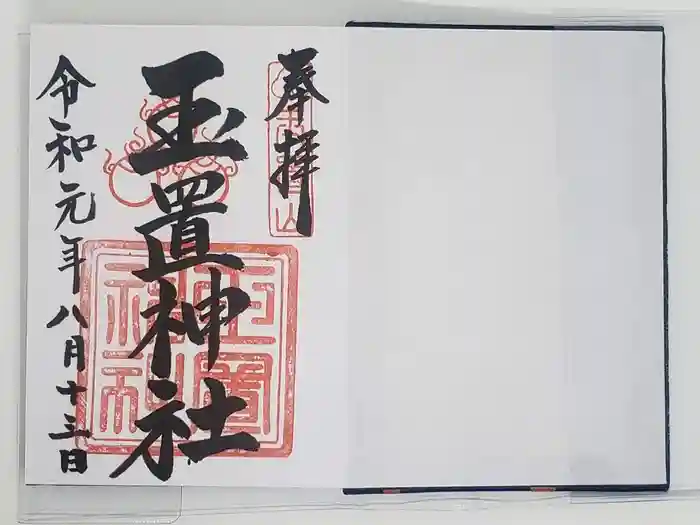 奉拝
玉置神社
令和元年八月十三日
玉置神社